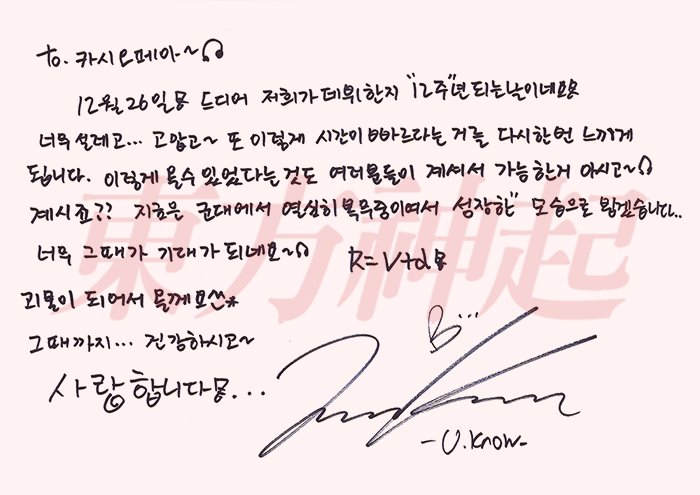 to. 카시오페아~
12월 26일 드디어 저희가 데뷔한지 "12주"년 되는날이네요
너무 설레고... 고맙고~ 또 이렇게 시간이 빠르다는 거를 다시한번 느끼게
됩니다. 이렇게 올수 있었다는것도 여러분들이 계셔서 가능한거 아시고~
계시죠?? 지금은 군대에서 열심히 복무중이여서 성장한" 모습으로 뵙겠습니다..
너무 그때가 기대가 되네요~ R=Vtd
괴물이 되어서 올께요
그때까지... 건강하시고~
B...
사랑합니다...
-U.Know-
東方神起